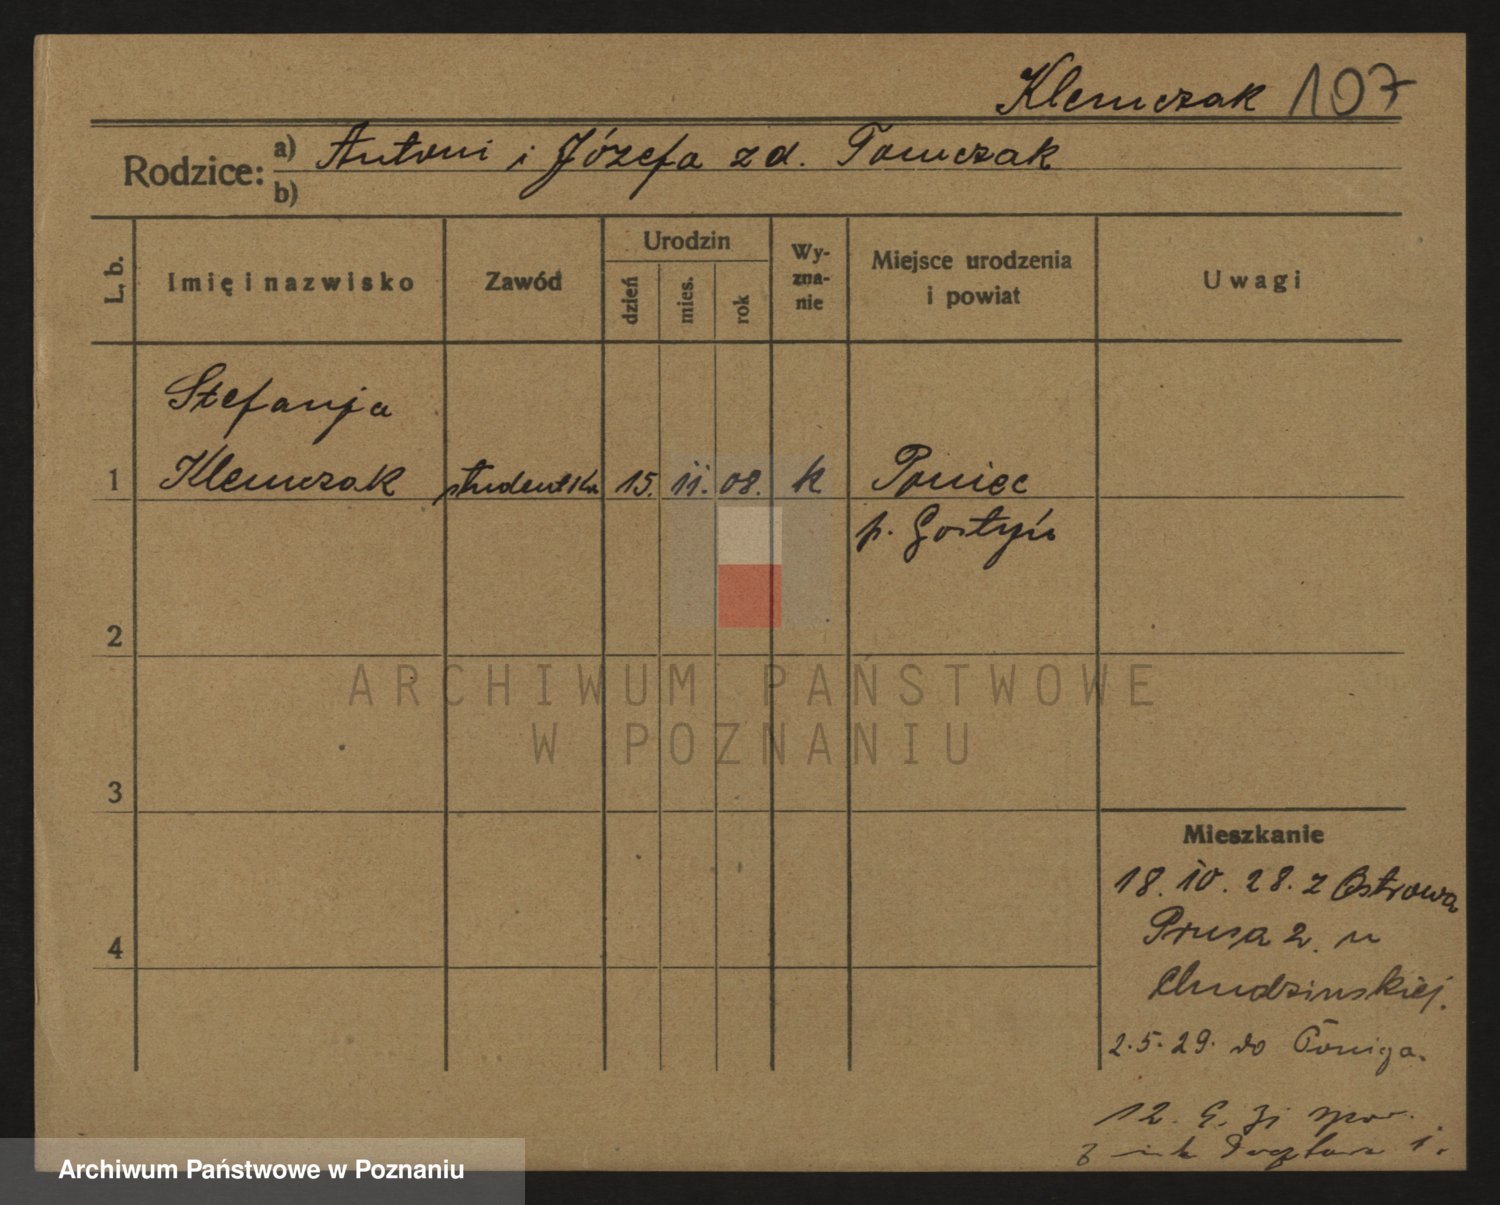 Klemczak 107
Rodzice: a) Antoni i Józefa zd. Tomczak
b)
L. b.
Imię i nazwisko
Zawód
Urodzin
dzień
mies.
rok
Wy-
zna-
nie
Miejsce urodzenia
i powiat
Uwagi
Stefanja
1 Klemczak studentka 15. 11. 08. k Poniec
p. Gostyń
2
ARCHIWUM PAŃSTWOWE
W POZNANIU
3
Mieszkanie
18. 10. 28. z Ostrowa
4
Prusa 2. u
Chudzinskiej.
2.5.29. do
12.
Archiwum Państwowe w Poznaniu